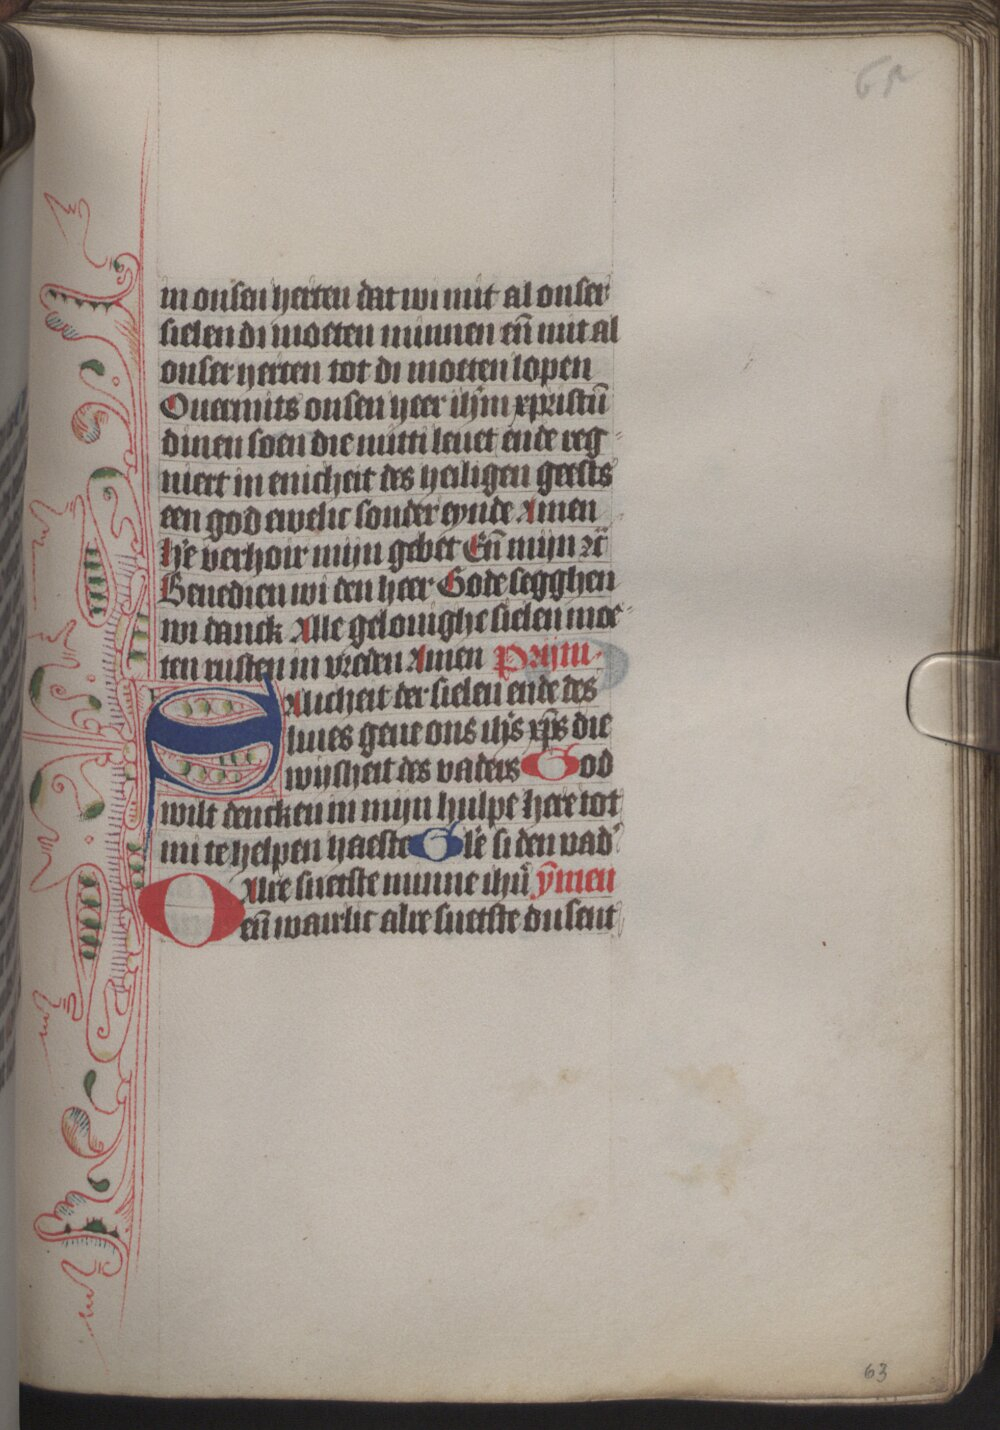 61
in onsen herten dat wi mit al onser
sielen di moeten minnen eñ mit al
onser herten tot di moeten lopen
Ouermits onsen heer ihm̄ xpristū
dinen soen die mitti leuet ende reg
niert in enicheit des heiligen geests
een god ewelic sonder eynde Amen
He verhoir mijn gebet Eñ mijn ꝛc̄
Benedien wi den heer Gode segghen
wi danck Alle gelouighe sielen moe
ten rusten in vreden Amen Prijm
Salicheit der sielen ende des
liues geue ons ihs̄ xp̄s die
wijsheit des vaders God
wilt dencken in mijn hulpe here tot
mi te helpen haeste Gle si den vad
O Alre suetste minne ihū ymen
eñ waerlic alre suetste du sent
63